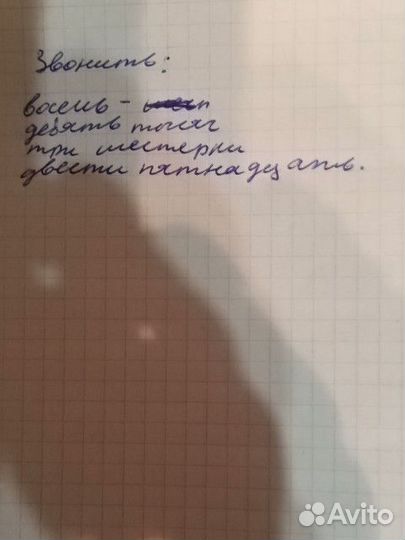 Звонить:
восемь -
девять тысяч
три шестерки
двести пятнадцать.
Avito